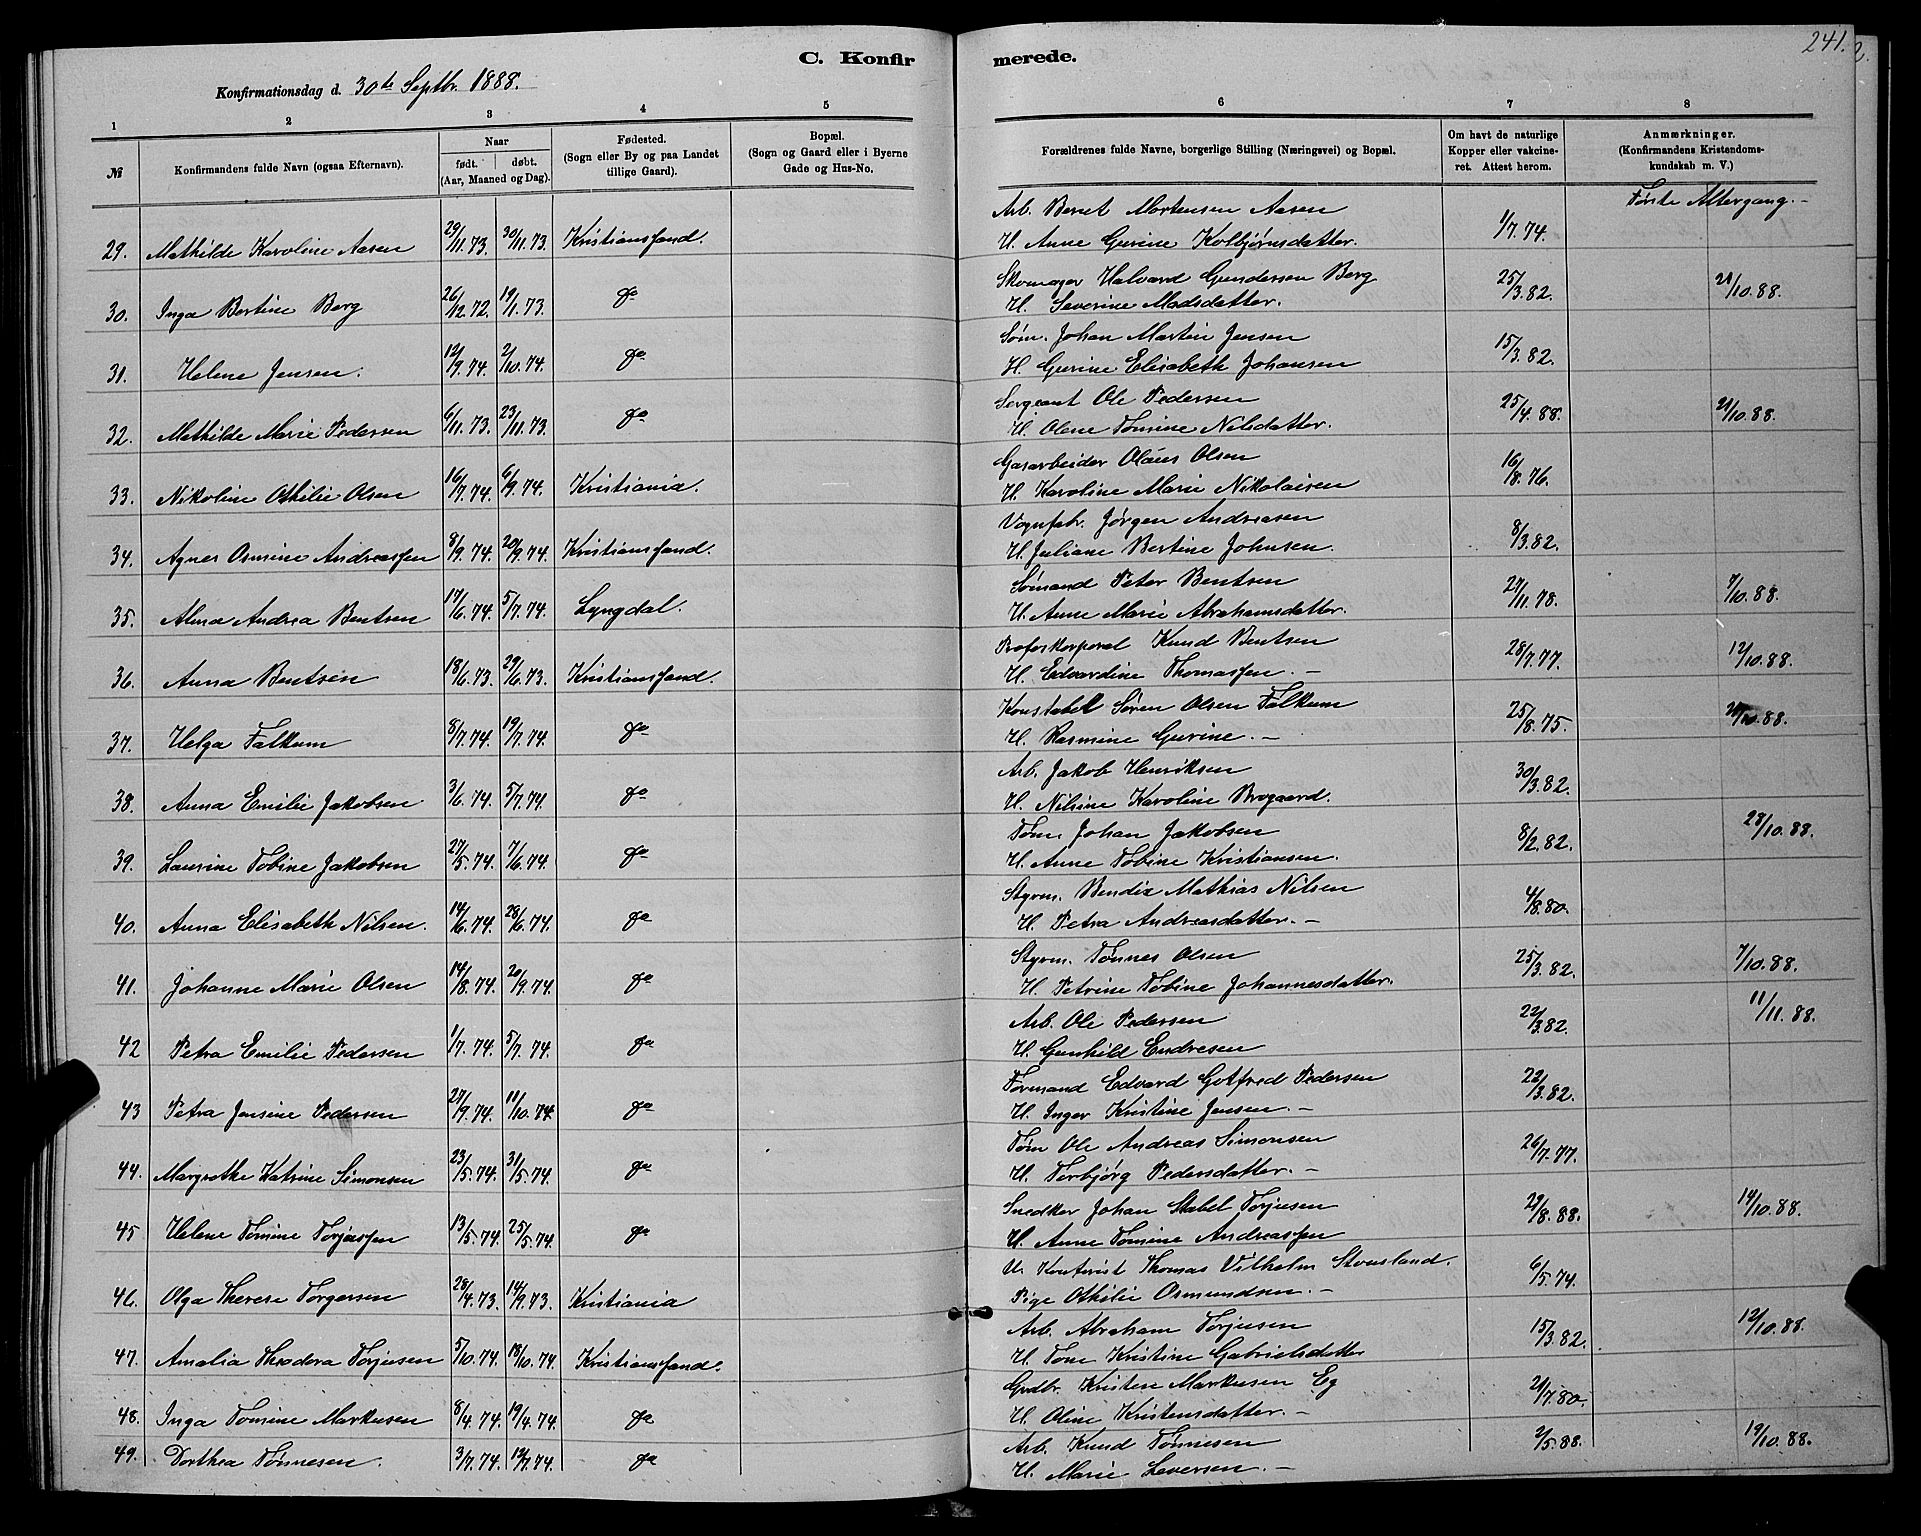 241.
C. Konfirmerede.
Konfirmationsdag d. 30te Septbr. 1888.
1 2 3 4 5 6 7 8
№ Konfirmandens fulde Navn (ogsaa Efternavn). Naar født. døbt. (Aar, Maaned og Dag). Fødested. (Sogn eller By og paa Landet tillige Gaard). Bopæl. (Sogn og Gaard eller i Byerne Gade og Hus-No. Forældrenes fulde Navne, borgerlige Stilling (Næringsvei) og Bopæl. Om havt de naturlige Kopper eller vakcineret. Attest herom. Anmærkninger. (Konfirmandens Kristendomskundskab m. V.)
Første Altergang.-
29. Mathilde Karoline Aasen 29/11.73. 30/11.73. Kristianssand. Arb. Bernt Mortensen Aasen 1/7.74.
H. Anne Gurine Kolbjørnsdatter.
30. Inga Bertine Berg 26/12.72. 19/1.73. do Skomager Halvard Gundersen Berg 25/3.82. 21/10.88.
H. Severine Madsdatter.
31. Helene Jensen. 12/9.74. 2/10.74. do Søm. Johan Martin Jensen 15/3.82.
H. Gurine Elisabeth Johansen
32. Mathilde Marie Pedersen 6/11.73. 23/11.73. do Sergeant Ole Pedersen 25/4.88. 21/10.88.
H. Olene Tomine Nilsdatter.
33. Nikoline Othilie Olsen 16/7.74. 6/9.74. Kristiania. Gasarbeider Olaus Olsen 16/8.76.
H. Karoline Marie Nikolaisen
34. Agnes Osmine Andreassen 8/9.74. 20/9.74. Kristianssand. Vognfabr. Jørgen Andreasen 8/3.82.
H. Juliane Bertine Johnsen.
35. Alma Andrea Bentsen 17/6.74. 5/7.74. Lyngdal. Sømand Peter Bentsen 27/11.78. 7/10.88.
H. Anne Marie Abrahamsdatter.
36. Anna Bentsen 18/6.73. 29/6.73. Kristianssand. Profoskorporal Knud Bentsen 28/7.77. 12/10.88.
H. Edvardine Thomassen. -
37. Helga Falkum 8/7.74. 19/7.74. do Konstabel Søren Olsen Falkum 25/8.75. 21/10.88.
H. Rasmine Gurine. -
38. Anna Emilie Jakobsen 3/6.74. 5/7.74. do Arb. Jakob Henriksen 30/3.82.
H. Nilsine Karoline Brogaard.
39. Laurine Tobine Jakobsen 27/5.74. 7/6.74. do Tøm. Johan Jakobsen 8/2.82. 28/10.88.
H. Anne Tobine Kristiansen.
40. Anna Elisabeth Nilsen. 14/6.74. 28/6.74. do Styrm. Bendix Mathias Nilsen 4/8.80.
H. Petra Andreasdatter. -
41. Johanne Marie Olsen 14/8.74. 20/9.74. do Styrm. Tønnes Olsen 25/3.82. 7/10.88.
H. Petrine Tobine Johannesdatter.
42 Petra Emilie Pedersen 1/7.74. 5/7.74. do Arb. Ole Pedersen 22/3.82. 11/11.88.
H. Gunhild Endresen
43 Petra Jensine Pedersen 27/9.74. 11/10.74. do Formand Edvard Gotfred Pedersen 22/3.82.
H. Inger Kristine Jensen. -
44. Margrethe Katrine Simonsen 23/5.74. 31/5.74. do Tøm Ole Andreas Simonsen 26/7.77.
H. Torbjørg Pedersdatter. -
45 Helene Tomine Torjussen 13/5.74. 25/5.74. do Snedker Johan Stabel Torjusen 21/8.88. 14/10.88.
H. Anne Tomine Andreassen
46. Olga Therese Torgersen 28/4.73. 14/9.73. Kristiania U. Kontorist Thomas Vilhelm Stousland. 6/5.74.
Pige Othilie Osmundsen. -
47. Amalia Theodora Torjusen 5/10.74. 18/10.74. Kristianssand. Arb. Abraham Torjusen 15/3.82. 12/10.88.
H. Tone Kristine Gabrielsdatter
48. Inga Tomine Markusen 8/4.74. 19/4.74. do Grdbr. Kristen Markusen Eg 21/7.80.
H. Oline Kristensdatter. -
49. Dorthea Tønnesen. 3/7.74. 12/7.74. do Arb. Knud Tønnesen 2/5.88. 19/10.88.
H. Marie Seversen. -